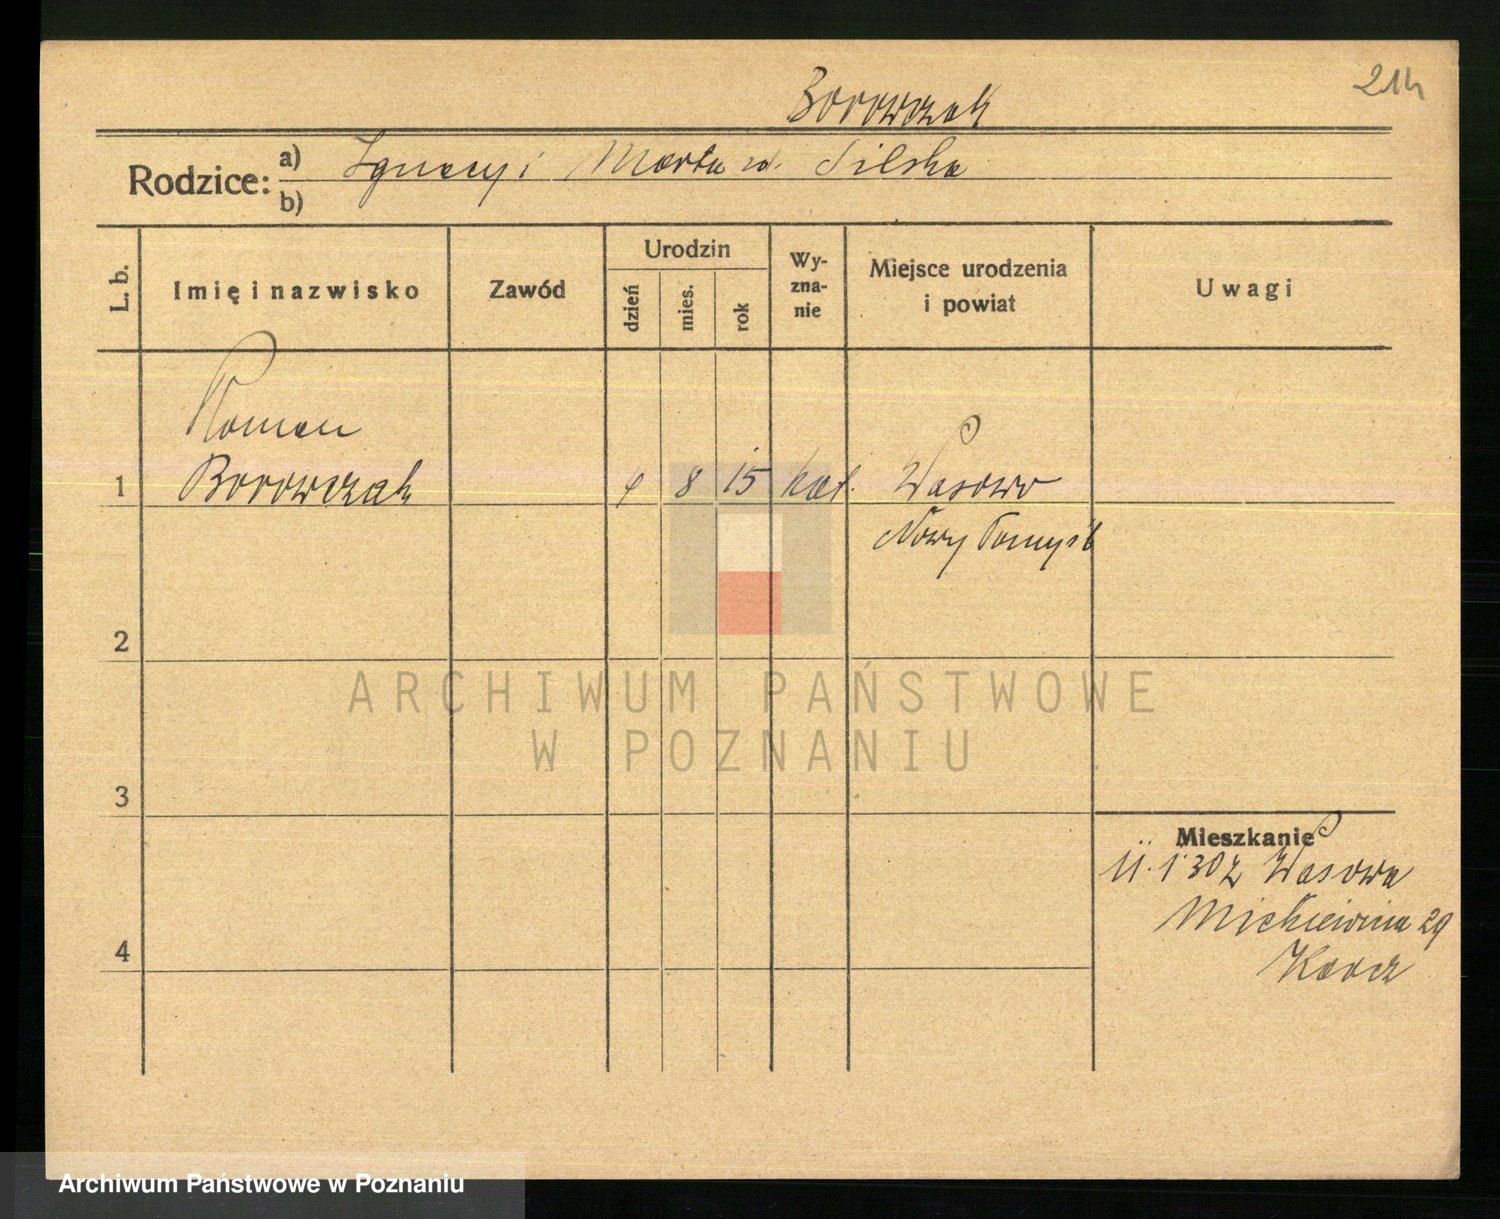 214
Borowczak
Rodzice: a) Ignacy i Marta
b)
L. b.
Imię i nazwisko
Zawód
Urodzin
dzień
mies.
rok
Wy-
zna-
nie
Miejsce urodzenia
i powiat
Uwagi
Roman
1 Borowczak 8 15 kat. Wąsowo
Nowy Tomyśl
2
ARCHIWUM PAŃSTWOWE
W POZNANIU
3
Mieszkanie
11. 1 30 z Wąsowa
4
Mickiewicza 29
Archiwum Państwowe w Poznaniu